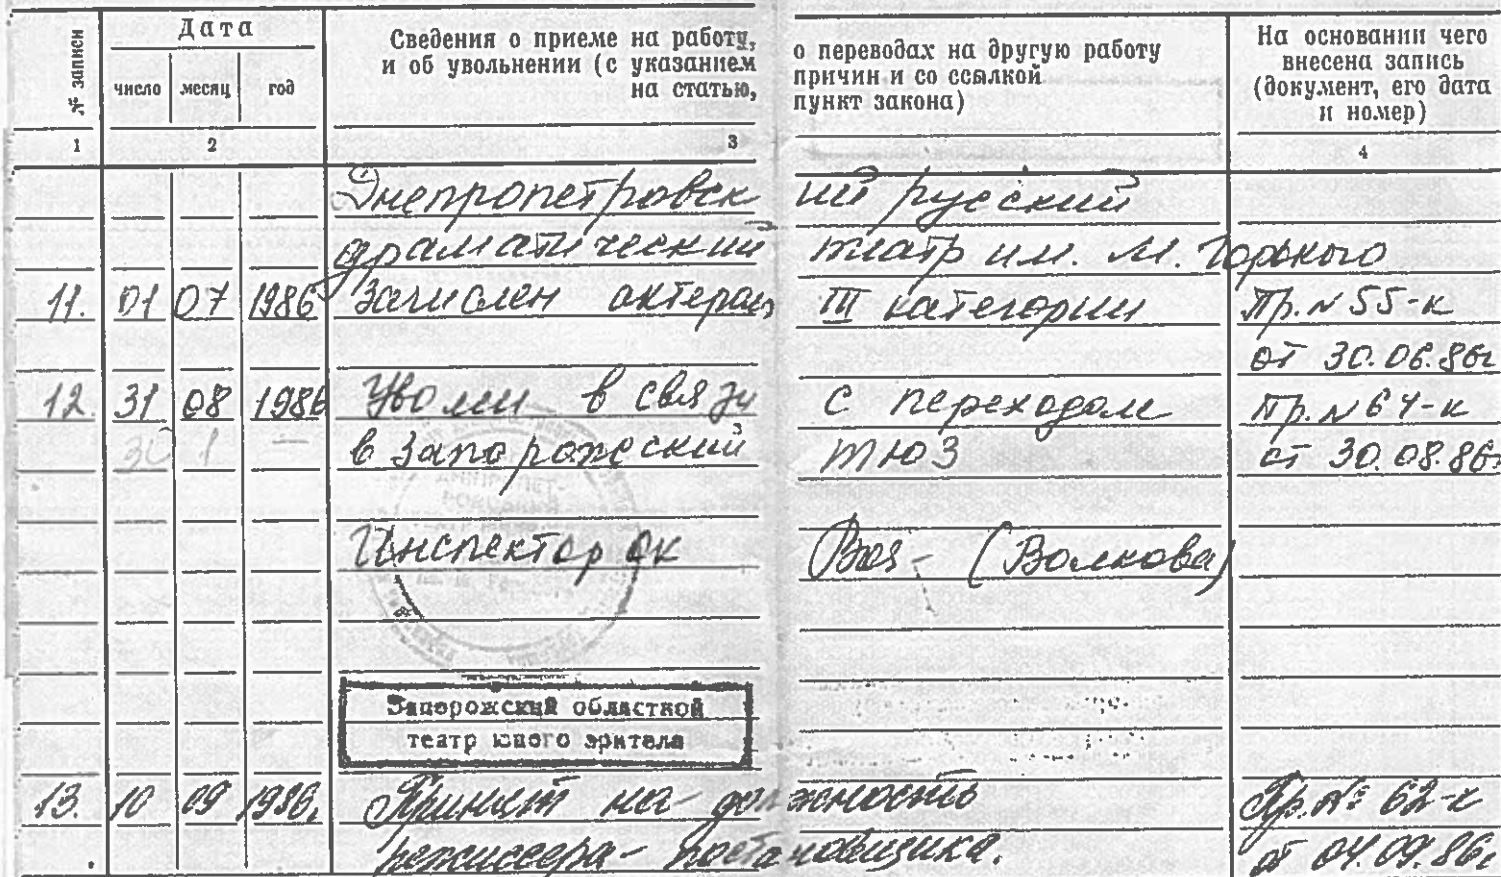 № записи
Дата
число месяц год
Сведения о приеме на работу, о переводах на другую работу
и об увольнении (с указанием причин и со ссылкой
на статью, пункт закона)
На основании чего
внесена запись
(документ, его дата
и номер)
1 2 3 4
Днепропетровский русский
драматический театр им. М. Горького
11. 01 07 1986 Зачислен актером III категории Пр. N 55-к
от 30.06.86г
12. 31 08 1986 Уволен в связи с переходом Пр. N 64-к
в Запорожский ТЮЗ от 30.08.86г
Инспектор ОК (Волкова)
Запорожский областной
театр юного зрителя
13. 10 09 1986г Принят на должность Пр. № 62-к
режиссера-постановщика. от 04.09.86г